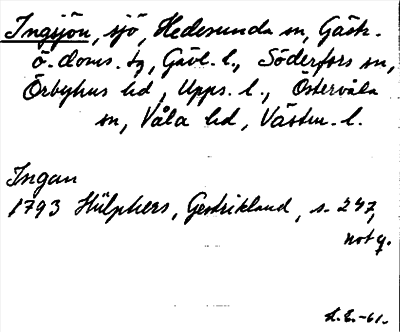 Ingsjön, sjö, Hedesunda sn, Gästr.
ö. doms. tg, Gävl. l., Söderfors sn,
Örbyhus hd, Upps. l., Östervåla
sn, Våla hd, Västm. l.
Ingan
1793 Hülphers, Gestrikland, s. 247,
not q.
L.E.-61.